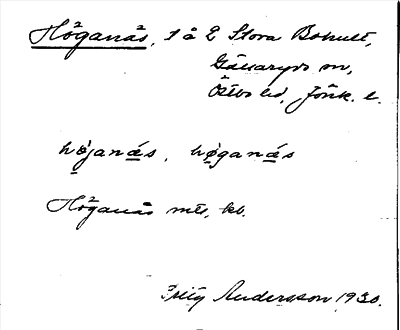 Höganäs, 1 å 2 Stora Bohult,
Gällaryds sn,
Östbo hd, Jönk. l.
höjanäs, höganäs
Höganäs mts, kb.
Fritz Andersson 1930.